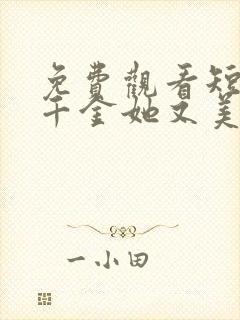 免費觀看短
千金她又美
一小田